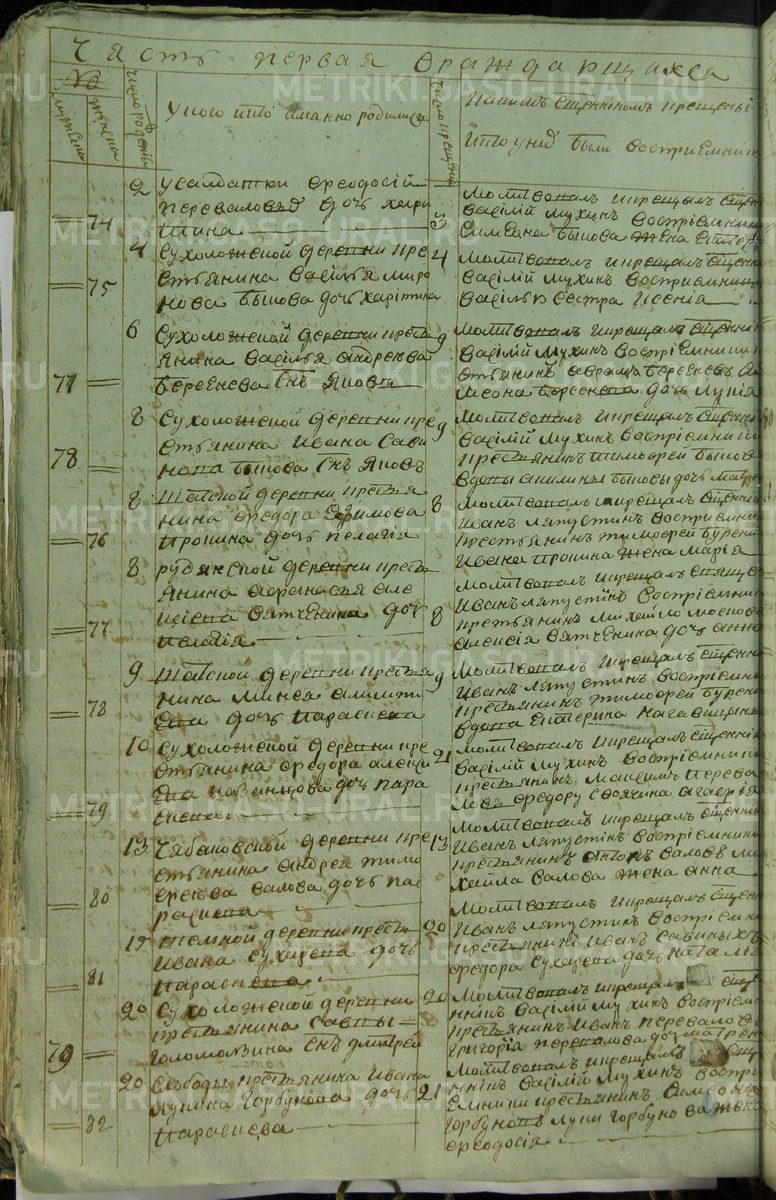 Часть первая о раждающихся
№
мужеска
женска
число рожденія
У кого кто имянно родились
число крещенія
Каким священником крещены
и кто у них были восприемники
2 У салдатки Феодосіи
Переваловой дочь Хари
74 тина
3 Молитвовалъ и крещалъ
Василій Мухинъ восприемница
Симеона Быкова жена Екатер
4 Сухоложской деревни кре
стьянина Василья Миро
75 нова Быкова дочь Харитина
4 Молитвовалъ и крещалъ
Василій Мухинъ восприемница
Василья сестра Ксенія
6 Сухоложской деревни кресть
янина Василья Андреева
77 Берсенева сынъ Яковъ
9 Молитвовалъ и крещалъ
Василій Мухинъ восприемники
стьянинъ Аврамъ Берсеневъ
Берсенева дочь Лукія
8 Сухоложской деревни кре
стьянина Ивана Сави
78 нова Быкова сынъ Яковъ
9 Молитвовалъ и крещалъ
Василій Мухинъ восприемники
крестьянинъ Тимофей Быков
вдовы Акилины Быковы дочь Матре
8 Шатской деревни крестья
нина Федора Ефимова
76 Пронина дочь Пелагія
8 Молитвовалъ и крещалъ
Иванъ Ляпустинъ восприемни
крестьянинъ Тимофей Бурени
Ивана Пронина жена Марія
8 Рудянской деревни кресть
янина Афанасья Але
77 ксіева Вятченина дочь
Пелагія
8 Молитвовалъ и крещалъ
Иванъ Ляпустинъ восприемни
крестьянинъ Михайло
Алексія Вятченина дочь Анна
9 Шатской деревни крестья
нина Минея
78 дочь Параскева
9 Молитвовалъ и крещалъ
Иванъ Ляпустинъ восприемни
крестьянинъ Тимофей Бурени
вдова Екатерина
10 Сухоложской деревни кре
стьянина Федора Алексі
ева Казанцова дочь Пара
79 скева
21 Молитвовалъ и крещалъ
Василій Мухинъ восприемники
крестьянинъ Максимъ Перева
ловъ Федору своячина Агафія
13 Чабановской деревни кре
стьянина Андрея Тимо
феева Валова дочь Па
80 раскева
13 Молитвовалъ и крещалъ
Иванъ Ляпустинъ восприемники
крестьянинъ Антонъ Валовъ Ми
хайла Валова жена Анна
15 Темной деревни крестья
Ивана Сухарева дочь
81 Параскева
20 Молитвовалъ и крещалъ
Иванъ Ляпустинъ восприемни
крестьянинъ Иванъ Савиныхъ
Федора Сухарева дочь Наталія
20 Сухоложской деревни
крестьянина Саввы
79 Голомолзина сынъ Дмитрей
20 Молитвовалъ и крещалъ
нникъ Василій Мухинъ восприем
крестьянинъ Иванъ Перевалов
Григорія Перевалова дочь Матрен
20 Слободы крестьянина Ивана
Лукина Горбунова дочь
82 Параскева
21 Молитвовалъ и крещалъ
нникъ Василій Мухинъ воспри
емники крестьянинъ Симеонъ
Горбуновъ Луки Горбунова жена
Феодосія
METRIKI.GASO-URAL.RU